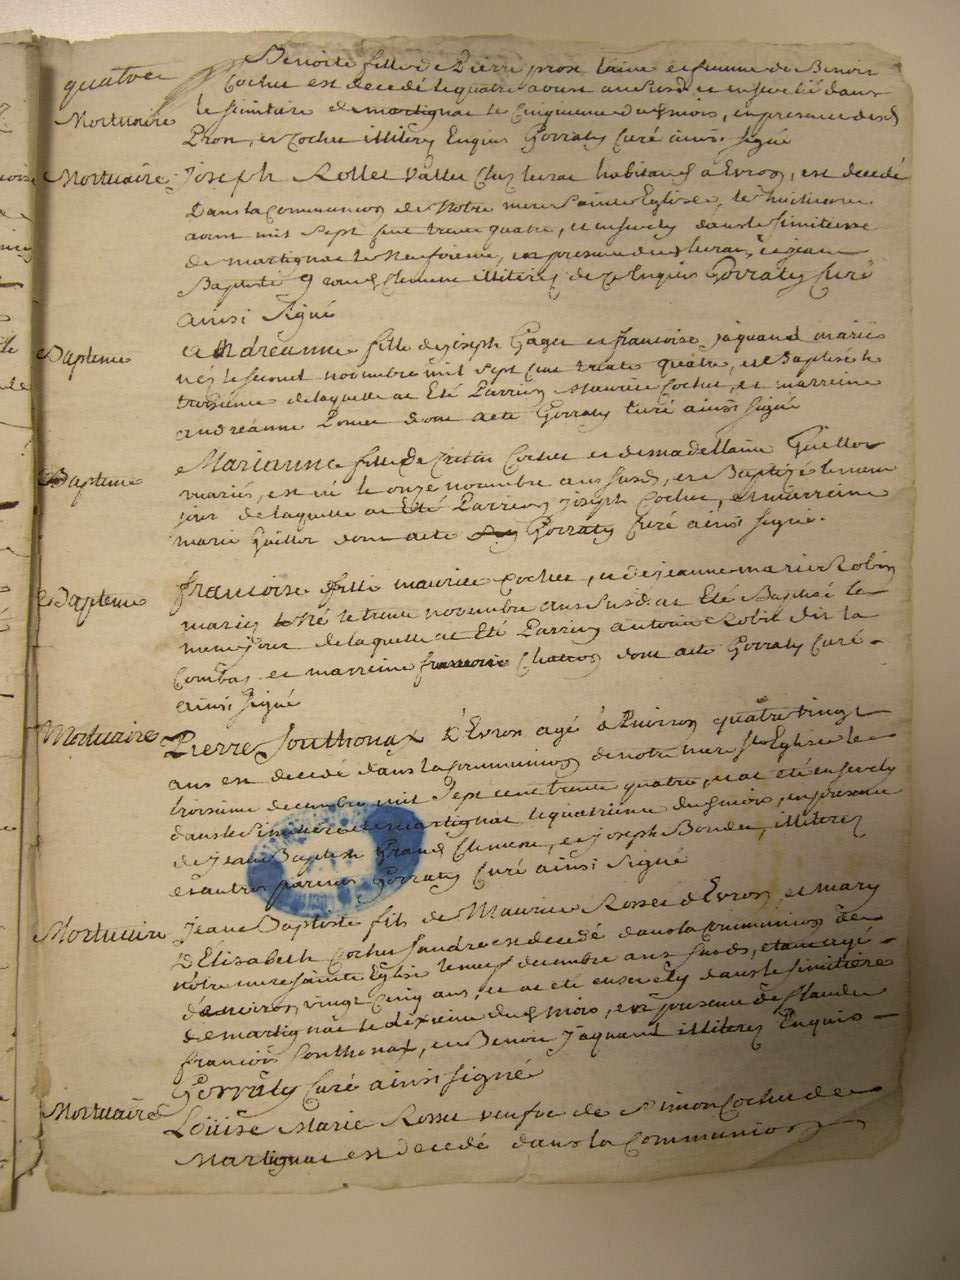 quatre
Mortuaire
Benoite fille de Pierre pros laine et femme de Benoit
Cochet est decedé le quatre aoust an susd et enseveli dans
le simitiere de martignac le cinquieme dud mois, en presence desd
Pron, et Cochet illiterez Enquis Gorraty Curé ainsi signé
Mortuaire
Joseph Rollet vallet chez leurac habitant a Evron, est decedé
Dans la Communion de Notre mere Sainte Eglise, le huitieme
aoust mil sept cent trente quatre, et ensevely dans le simitiere
de martignac le neufvieme, en presence dud leurac, et jean
Baptiste grand Clement illiterez de ce Enquis Gorraty Curé
ainsi signé
Bapteme
Andréanne fille de joseph Gaget et francoise jaquand mariés
née le second novembre mil sept cent trente quatre, est Baptisée le
troisieme de laquelle at Eté Parrein Maurice Cochet, et marreine
andréanne Ponet dont acte Gorraty Curé ainsi signé
Bapteme
Marianne fille de Cochet et de madellaine Guillot
mariés, est né le onze novembre an susd, et Baptizé le meme
jour de laquelle at Eté Parrein joseph Cochet, et marreine
marie Guillot dont acte Gorraty Curé ainsi signé.
Bapteme
francoise fille maurice Cochet, et de jeanne marie Robin
mariez né le trente novembre an susd at Eté Baptisé le
meme jour de laquelle at Eté Parrein antoine Robit dit la
Combaz et marreine francoise dont acte Gorraty Curé
ainsi signé
Mortuaire
Pierre Sonthonax d'Evron agé d'Environ quatre vingt
ans est decedé dans la Communion de notre mere Ste Eglise le
troisieme decembre mil sept cent trente quatre, et at eté ensevely
dans le simitiere de martignac le quatrieme dud mois, en presence
de jean Baptiste Grand Clement, et joseph illiterez
et autres parens Gorraty Curé ainsi signé
Mortuaire
Jean Baptiste fils de Maurice Rosset d'Evron, et mary
D'Elisabeth Cochet est decedé dans la Communion de
Nôtre mere sainte Eglise le neuf decembre an susd, etant agé
d'environ vingt cinq ans, et at eté ensevely dans le simitiere
de martignac le dixieme dud mois, en presence de Claude
francois Sonthonax, et Benoit Jaquand illiterez Enquis
Gorraty Curé ainsi signé
Mortuaire
Loüise Marie Rosset veufve de Simon Cochet de
Martignac est decedé dans la Communion